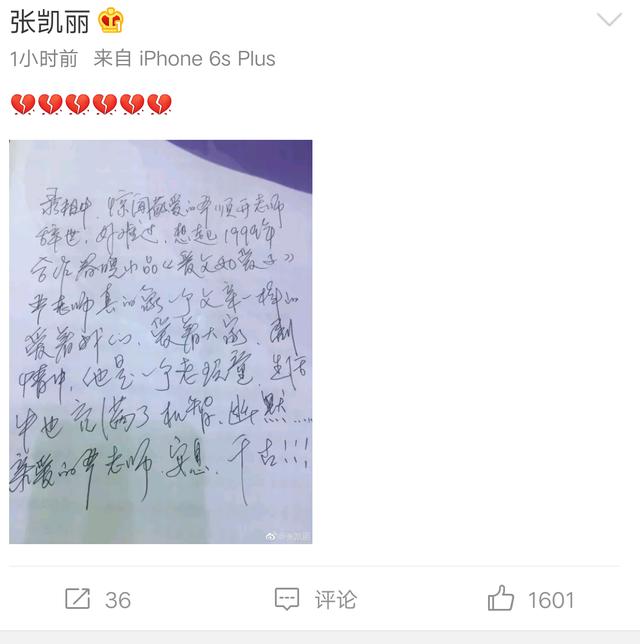 张凯丽
1小时前 来自 iPhone 6s Plus
录相中,惊闻敬爱的严顺开老师
辞世,好难过,想起1999年
合作春晚小品《爱父如爱子》
严老师真的象一个父亲一样的
爱着我们,爱着大家,剧
情中,他是一个老顽童,生活
中也充满了机智、幽默……
亲爱的严老师,安息,千古!!!
@张凯丽
36 评论 1601